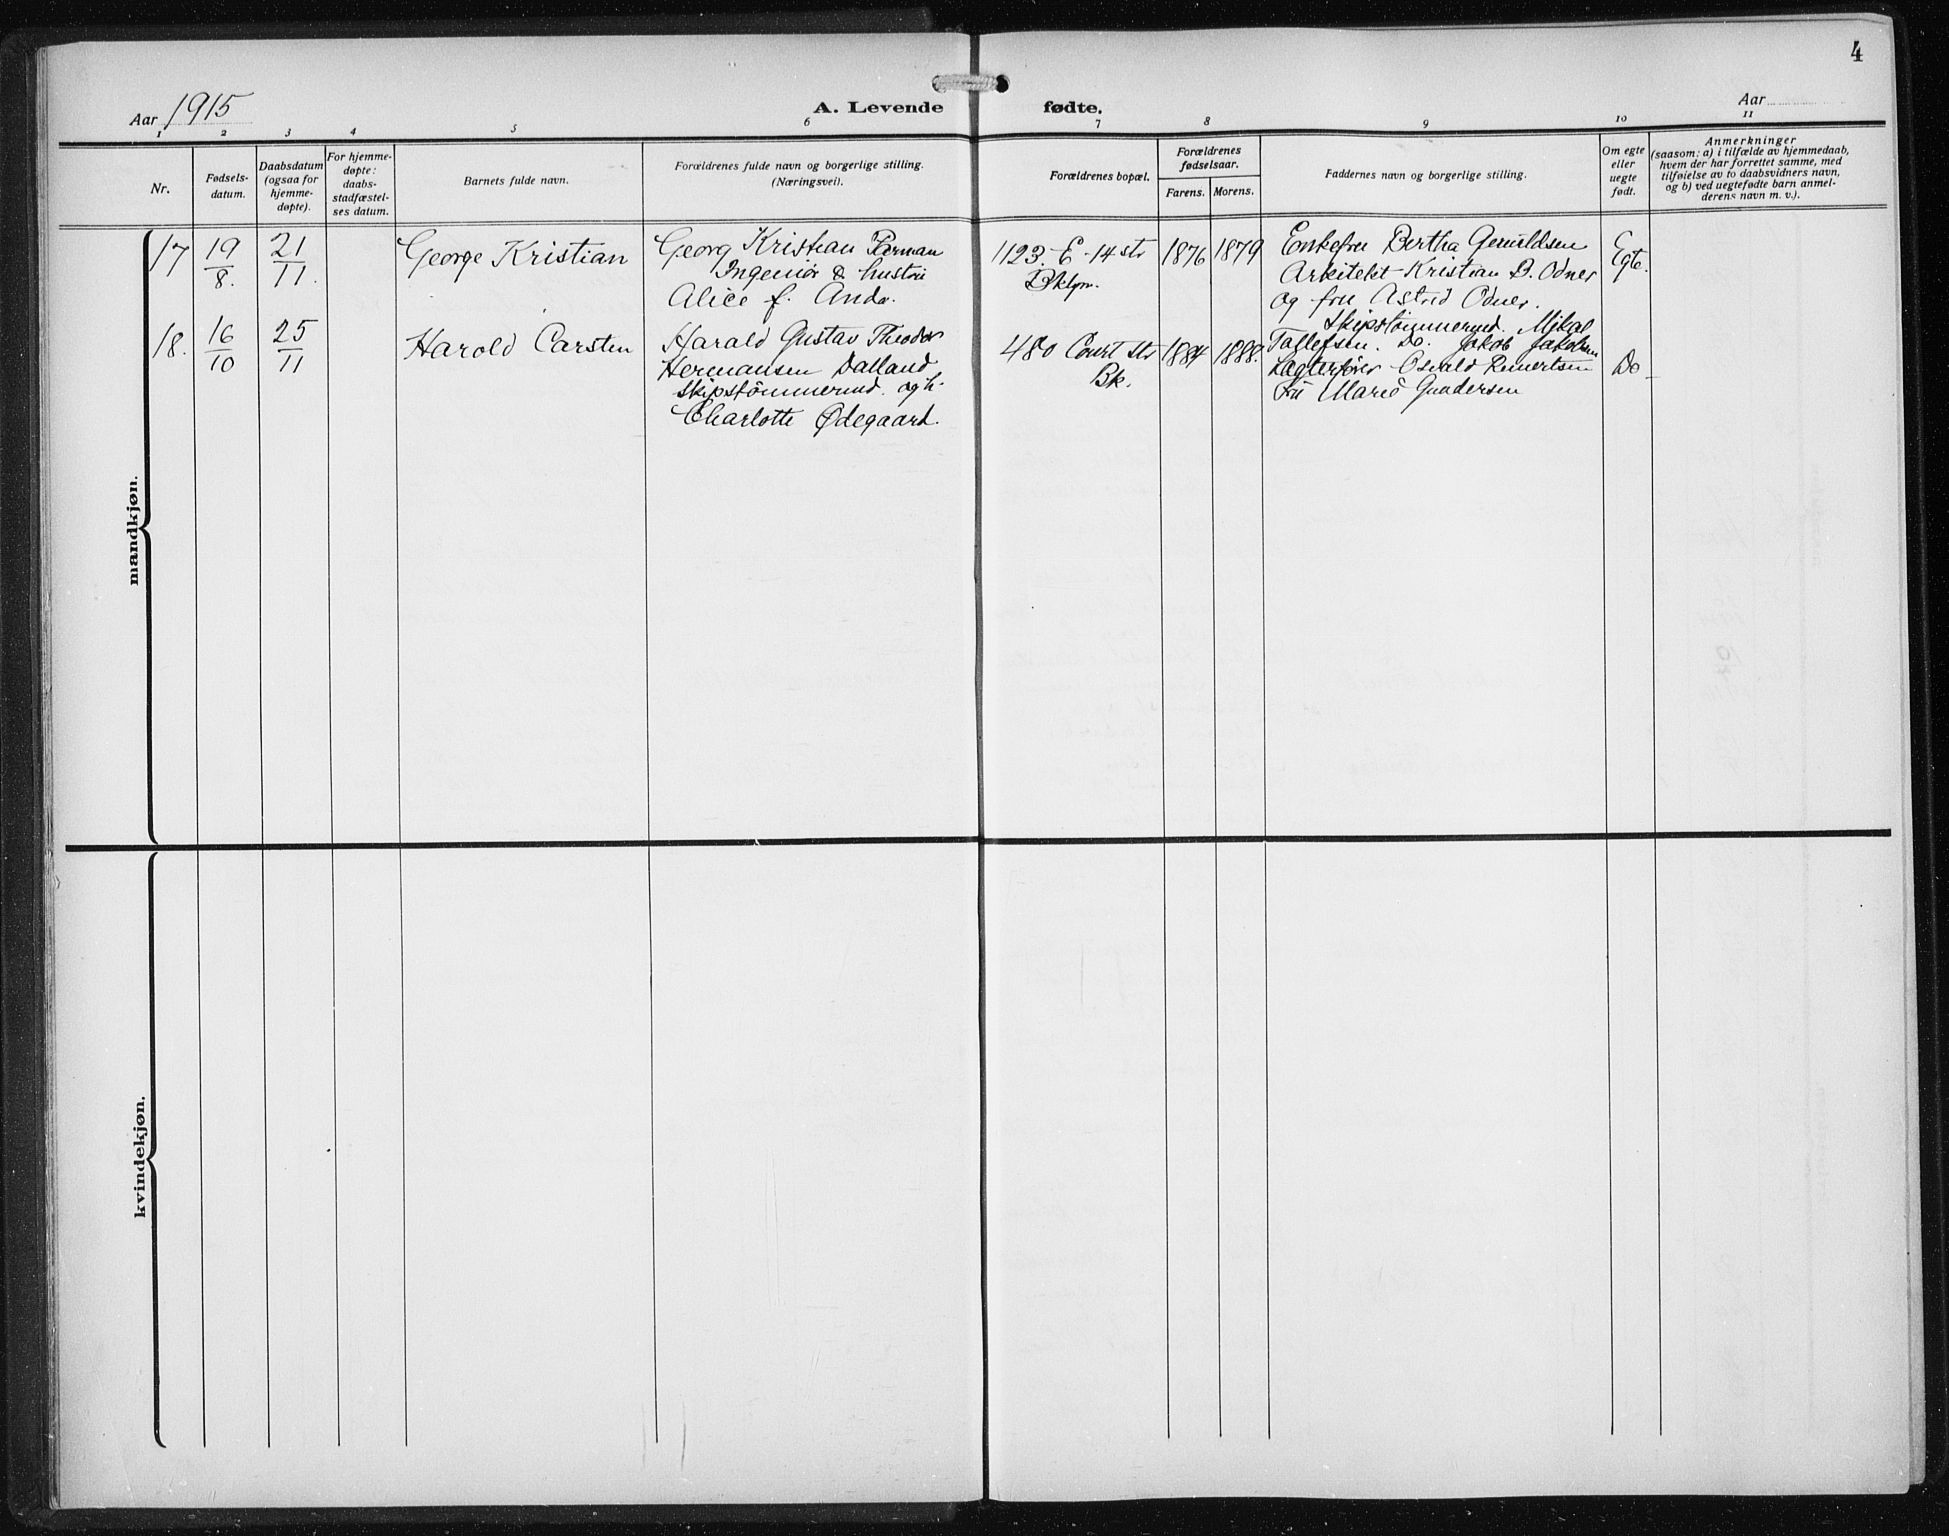 4
Aar 1915
A. Levende fødte.
Aar
1 2 3 4 5 6 7 8 9 10 11
Nr.
Fødsels-
datum.
Daabsdatum
(ogsaa for
hjemme-
døpte).
For hjemme-
døpte:
daabs-
stadfæstel-
ses datum.
Barnets fulde navn.
Forældrenes fulde navn og borgerlige stilling.
(Næringsvei).
Forældrenes bopæl.
Forældrenes
fødselsaar.
Farens. Morens.
Faddernes navn og borgerlige stilling.
Om egte
eller
uegte
født.
Anmerkninger
(saasom: a) i tilfælde av hjemmedaab,
hvem der har forrettet samme, med
tilføielse av to daabsvidners navn,
og b) ved uegtefødte barn anmel-
derens navn m. v.).
mandkjøn.
17
19/8.
21/11.
George Kristian
Georg Kristian
Ingeniør & hustru
Alice f.
1123. E-14 str
Bklyn.
1876
1879
Enkefru Bertha
Arkitekt Kristian B. Odner
og fru Astrid Odner.
Egte.
18.
16/10
25/11
Harold Carsten
Harald Gustav Theodor
Hermansen Dalland
Skipstömmermd. og h.
Charlotte Ødegaard.
480 Court str
Bk.
1884
1888.
Skipstömmermd. Mikal
Tallefsen. Do. Jakob Jakobsen
Lægterfører Osvald Reinertsen
Fru Marie Gundersen
Do
kvindekjøn.